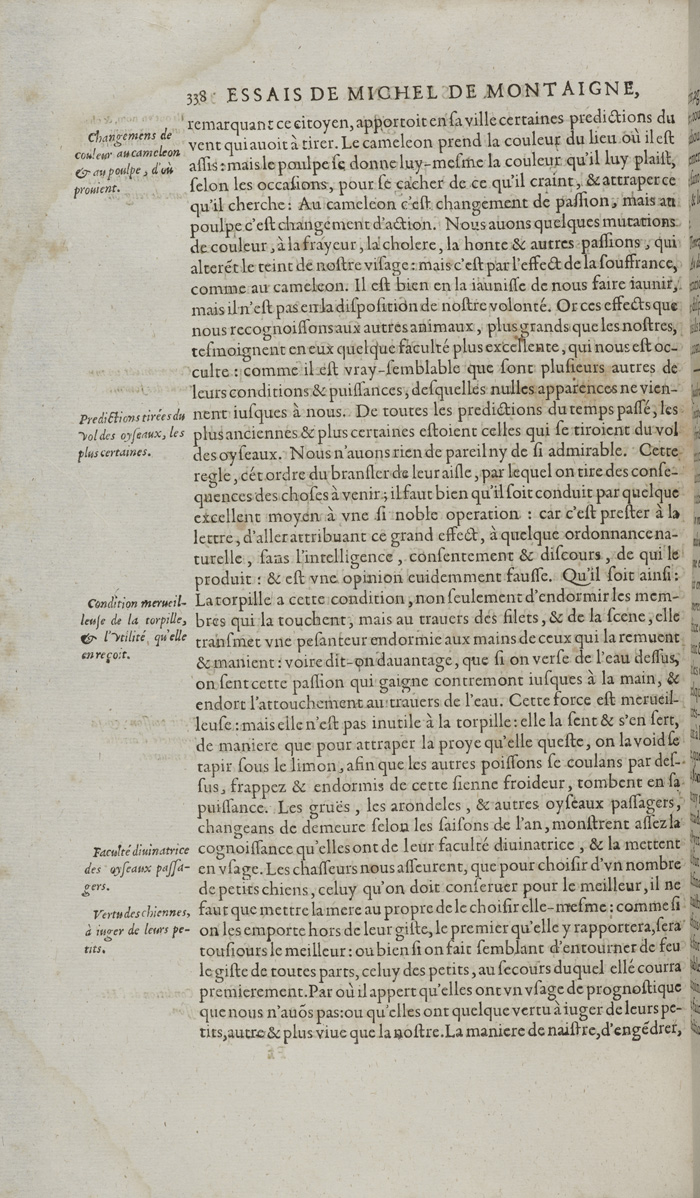 338 ESSAIS DE MICHEL DE MONTAIGNE,
remarquant ce citoyen, apportoit en ſa ville certaines predictions du
Changemens de
couleur au cameleon
& au poulpe, d'où
prouient.
vent qui auoit à tirer. Le cameleon prend la couleur du lieu où il eſt
aſſis: mais le poulpe ſe donne luy-meſme la couleur qu'il luy plaiſt,
ſelon les occaſions, pour ſe cacher de ce qu'il craint, & attraper ce
qu'il cherche: Au cameleon c'eſt changement de paſſion, mais au
poulpe c'eſt changement d'action. Nous auons quelques mutations
de couleur, à la frayeur, la cholere, la honte & autres paſſions, qui
alterẽt le teint de noſtre viſage: mais c'eſt par l'effect de la ſouffrance,
comme au cameleon. Il eſt bien en la iauniſſe de nous faire iaunir,
mais il n'eſt pas en la diſpoſition de noſtre volonté. Or ces effects que
nous recognoiſſons aux autres animaux, plus grands que les noſtres,
teſmoignent en eux quelque faculté plus excellente, qui nous eſt oc-
culte: comme il eſt vray-ſemblable que ſont pluſieurs autres de
leurs conditions & puiſſances, deſquelles nulles apparences ne vien-
Predictions tirées du
vol des oyſeaux, les
plus certaines.
nent iuſques à nous. De toutes les predictions du temps paſſé, les
plus anciennes & plus certaines eſtoient celles qui ſe tiroient du vol
des oyſeaux. Nous n'auons rien de pareil ny de ſi admirable. Cette
regle, cét ordre du branſler de leur aiſle, par lequel on tire des conſe-
quences des choſes à venir; il faut bien qu'il ſoit conduit par quelque
excellent moyen à vne ſi noble operation: car c'eſt preſter à la
lettre, d'aller attribuant ce grand effect, à quelque ordonnance na-
turelle, ſans l'intelligence, conſentement & diſcours, de qui le
produit: & eſt vne opinion euidemment fauſſe. Qu'il ſoit ainſi:
Condition merueil-
leuſe de la torpille,
& l'vtilité qu'elle
en reçoit.
La torpille a cette condition, non ſeulement d'endormir les mem-
bres qui la touchent, mais au trauers des filets, & de la ſcene, elle
tranſmet vne peſanteur endormie aux mains de ceux qui la remuent
& manient: voire dit-on dauantage, que ſi on verſe de l'eau deſſus,
on ſent cette paſſion qui gaigne contremont iuſques à la main, &
endort l'attouchement au trauers de l'eau. Cette force eſt merueil-
leuſe: mais elle n'eſt pas inutile à la torpille: elle la ſent & s'en ſert,
de maniere que pour attraper la proye qu'elle queſte, on la void ſe
tapir ſous le limon, afin que les autres poiſſons ſe coulans par deſ-
ſus, frappez & endormis de cette ſienne froideur, tombent en ſa
puiſſance. Les gruës, les arondeles, & autres oyſeaux paſſagers,
changeans de demeure ſelon les ſaiſons de l'an, monſtrent aſſez la
Faculté diuinatrice
des oyſeaux paſſa-
gers.
cognoiſſance qu'elles ont de leur faculté diuinatrice, & la mettent
en vſage. Les chaſſeurs nous aſſeurent, que pour choiſir d'vn nombre
de petits chiens, celuy qu'on doit conſeruer pour le meilleur, il ne
Vertu des chiennes,
à iuger de leurs pe-
tits.
faut que mettre la mere au propre de le choiſir elle-meſme: comme ſi
on les emporte hors de leur giſte, le premier qu'elle y rapportera, ſera
touſiours le meilleur: ou bien ſi on fait ſemblant d'entourner de feu
le giſte de toutes parts, celuy des petits, au ſecours duquel elle courra
premierement. Par où il appert qu'elles ont vn vſage de prognoſtique
que nous n'auõs pas: ou qu'elles ont quelque vertu à iuger de leurs pe-
tits, autre & plus viue que la noſtre. La maniere de naiſtre, d'engẽdrer,